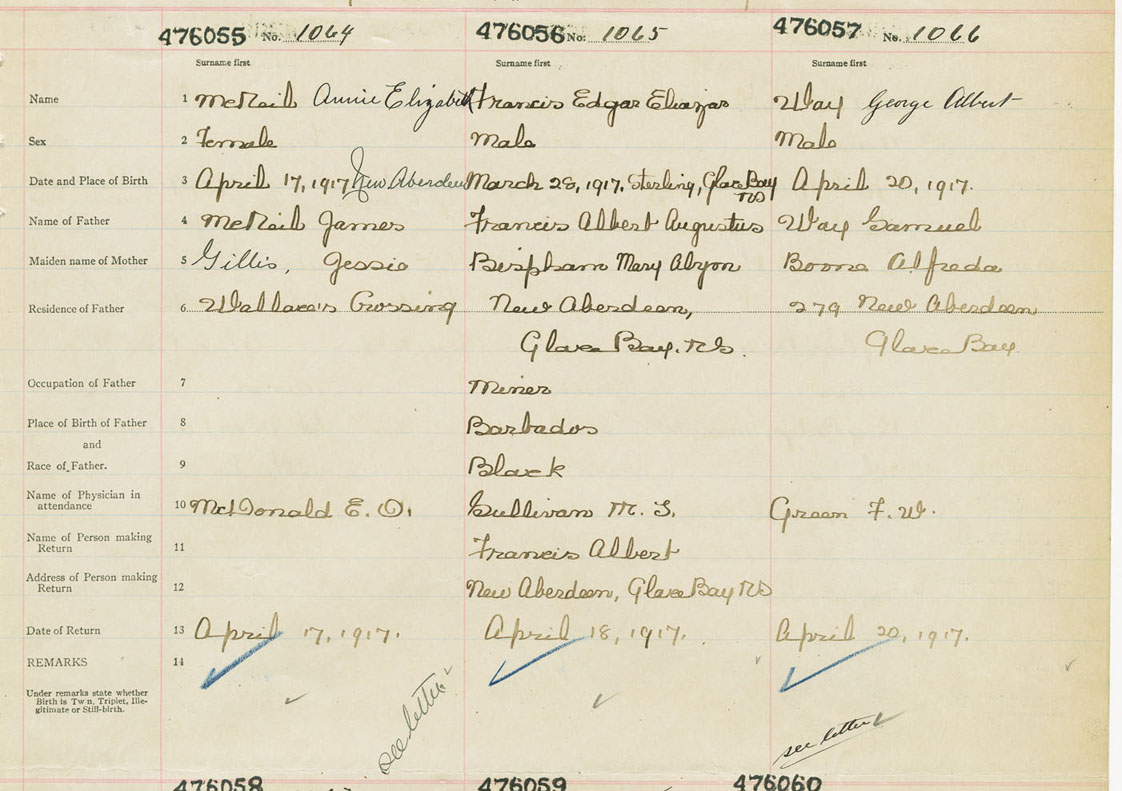 476055 No. 1064 476056 No. 1065 476057 No. 1066
Surname first Surname first Surname first
Name 1 McNeil Annie Elizabeth Francis Edgar Eliazar Way George Albert
Sex 2 Female Male Male
Date and Place of Birth 3 April 17, 1917 New Aberdeen March 28, 1917. Sterling, Glace Bay April 20, 1917.
NS
Name of Father 4 McNeil James Francis Albert Augustus Way Samuel
Maiden name of Mother 5 Gillis, Jessie Bispham Mary Boone Alfreda
Residence of Father 6 Wallace's Crossing New Aberdeen, 279 New Aberdeen
Glace Bay. NS. Glace Bay
Occupation of Father 7 Miner
Place of Birth of Father 8 Barbados
and
Race of Father. 9 Black
Name of Physician in
attendance 10 McDonald E. O. Sullivan M. G. Green F. W.
Name of Person making
Return 11 Francis Albert
Address of Person making
Return 12 New Aberdeen, Glace Bay NS
Date of Return 13 April 17, 1917. April 18, 1917. April 20, 1917.
REMARKS 14
Under remarks state whether
Birth is Twin, Triplet, Ille-
gitimate or Still-birth.
see letter see letter
476058 476059 476060